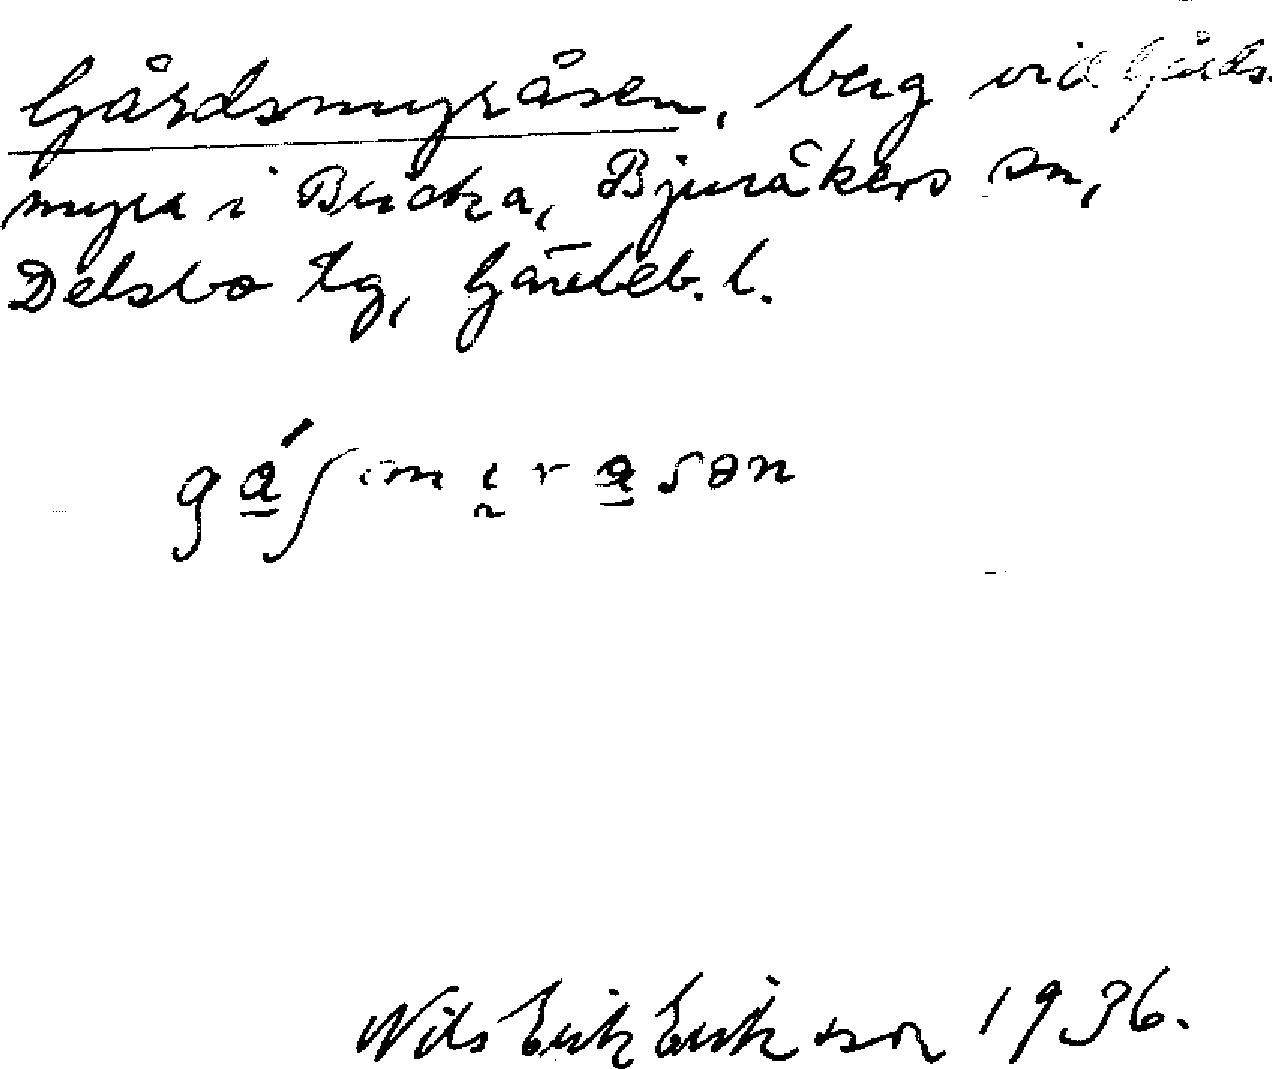 Gårdsmyråsen, berg vid Gårds-
myra i Bricka, Bjuråkers sn,
Delsbo tg, Gävleb. l.
Nils Erik Eriksson 1936.